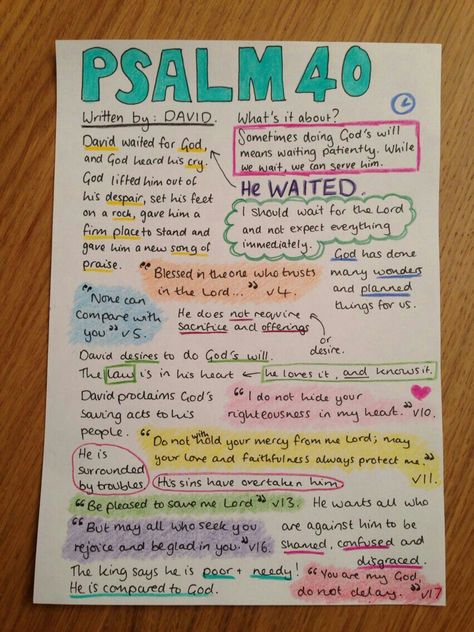 PSALM 40
Written by: DAVID.
What's it about?
Sometimes doing God's will
means waiting patiently. While
we wait, we can serve him.
David waited for God,
and God heard his cry.
God lifted him out of
his despair, set his feet
on a rock, gave him a
firm place to stand and
gave him a new song of
praise.
He WAITED.
I should wait for the Lord
and not expect everything
immediately.
God has done
many wonders
and planned
things for us.
"Blessed in the one who trusts
in the Lord..." v4.
"None can
compare with
you" v5.
He does not require
Sacrifice and offerings
or
desire.
David desires to do God's will.
The law is in his heart ← he loves it, and knows it.
David proclaims God's
saving acts to his
people.
"I do not hide your
righteousness in my heart." v10.
"Do not withhold your mercy from me Lord; may
your love and faithfulness always protect me."
v11.
He is
surrounded
by troubles
His sins have overtaken him
"Be pleased to save me Lord" v13.
"But may all who seek you
rejoice and be glad in you." v16.
He wants all who
are against him to be
shamed, confused and
disgraced.
The king says he is poor + needy!
He is compared to God.
"You are my God,
do not delay." v17